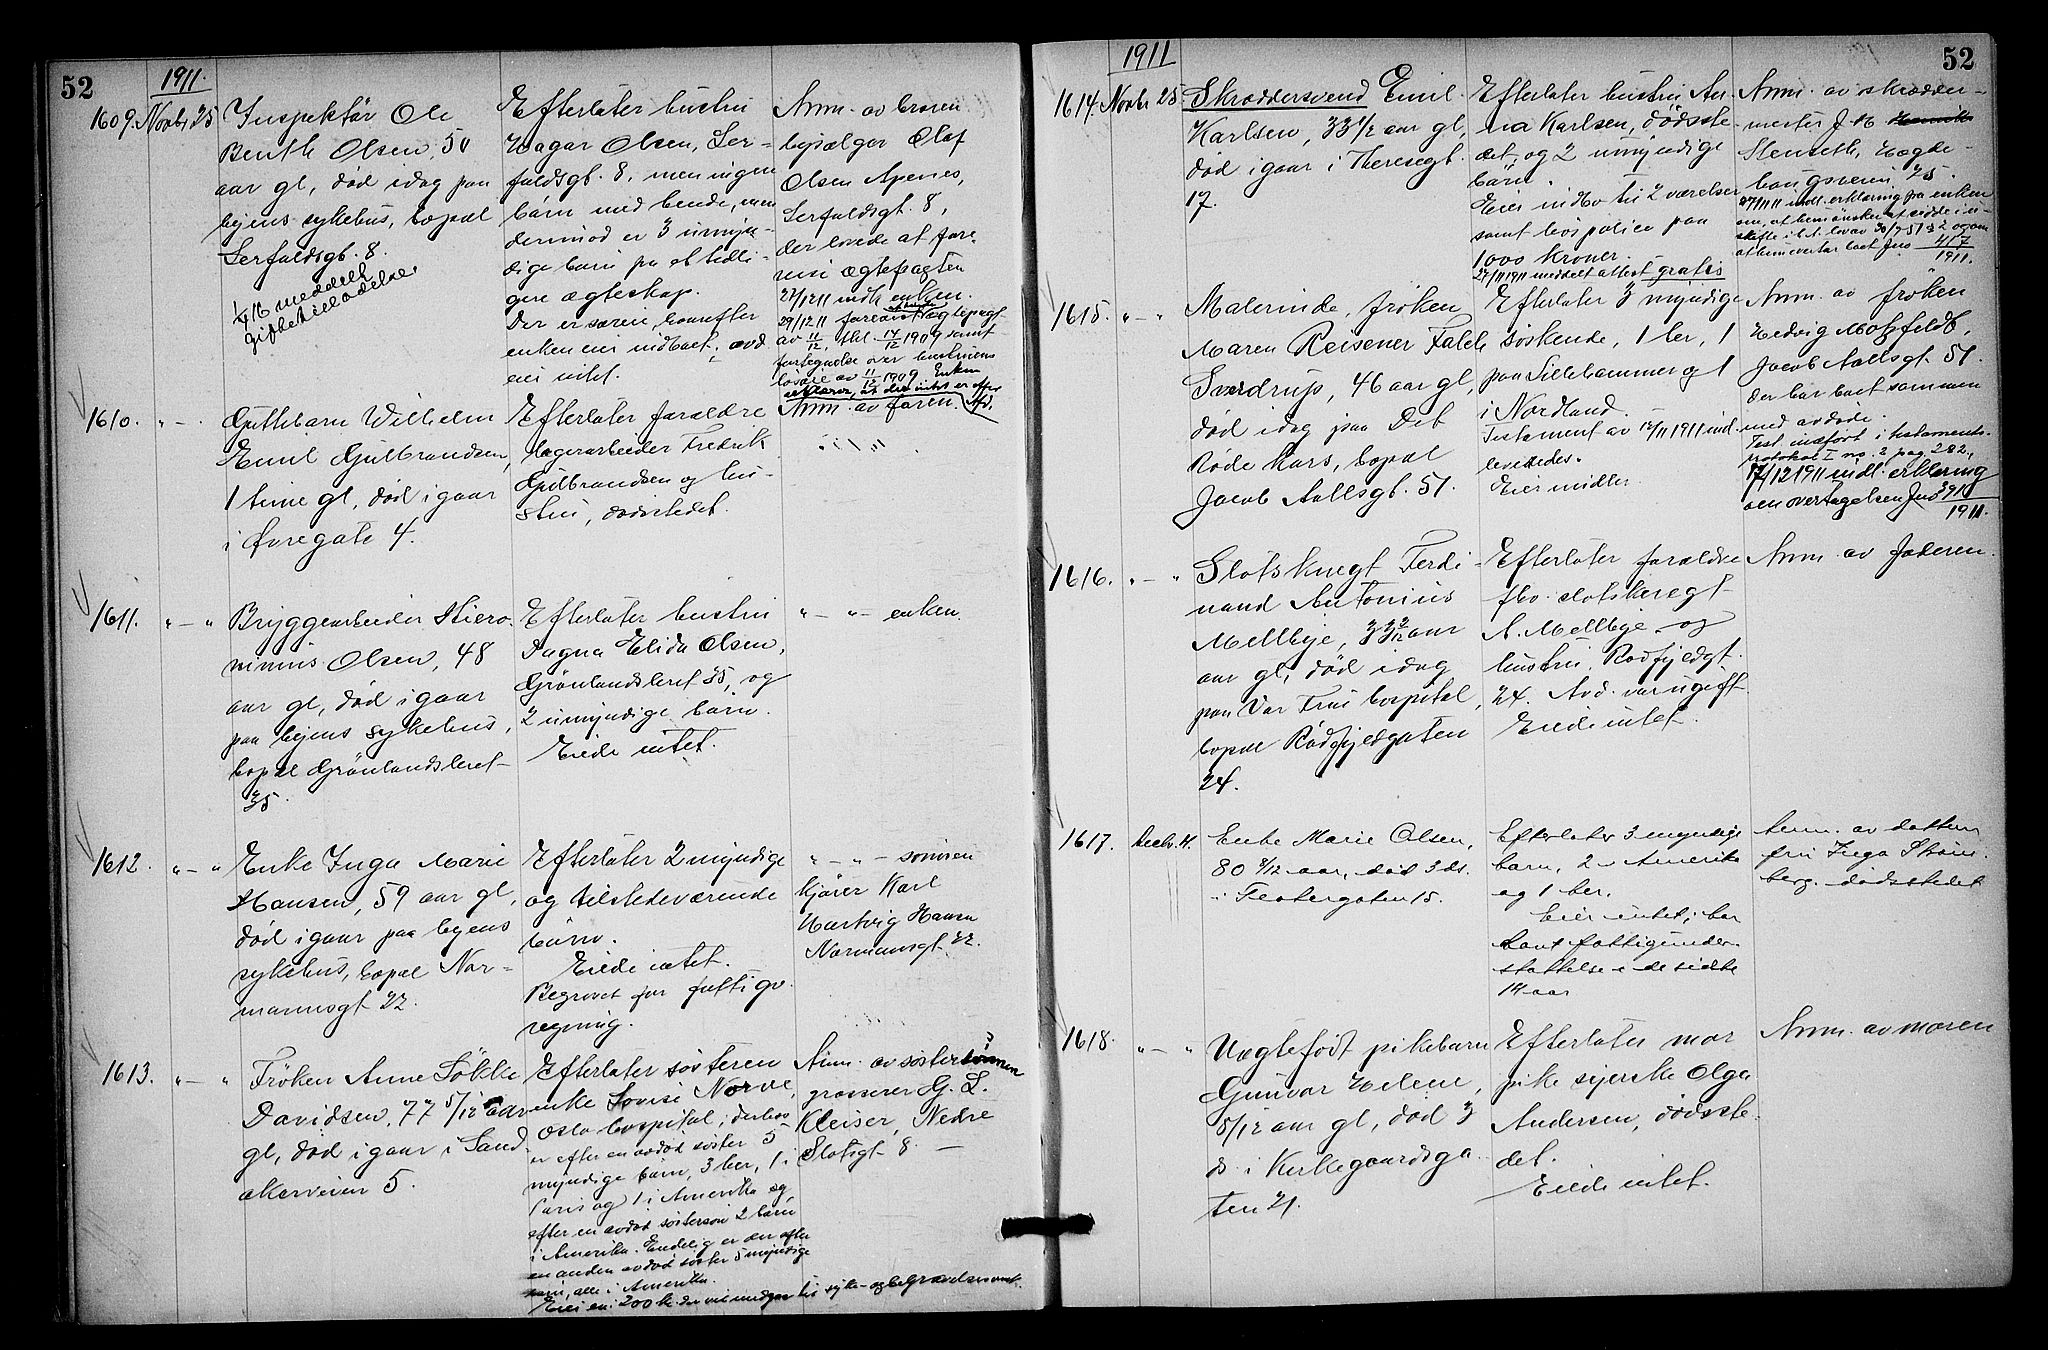 52
1911.
1609. Novbr 25
Inspektør Ole
Benth Olsen, 50
aar gl, død idag paa
byens sykehus, bopæl
Lerfaldsgt. 8.
1/4 16 meddelt
giftetilladelse
Efterlater hustru
Hagar Olsen, Ler-
faldsgt. 8, men ingen
børn med hende, men
derimod er 3 umyn-
dige barn fra et tidli-
gere ægteskap.
Der er særeie, hvorefter
enken eier indboet, avd.
eier intet.
Anm. av broren
Olaf
Olsen Apenes,
Lerfaldsgt. 8,
der lovede at fore-
vise ægtepagten
27/12 11 indk enken.
29/12 11 forevist ægtepagt
av 11/12, thl. 17/12 1909 samt
fortegnelse over hustruens
løsøre av 11/12 1909 Enken
erklærer, at der intet er efter
Afd.
1610. " — "
Guttebarn Wilhelm
Emil Gulbrandsen,
1 time gl, død igaar
i Øvregate 4.
Efterlater forældre
lagerarbeider Fredrik
Gulbrandsen og hu-
stru, dødsstedet.
Anm. av faren.
1611. " — "
Bryggearbeider Hiero-
nimus Olsen, 48
aar gl, død igaar
paa byens sykehus,
bopæl Grønlandsleret
35.
Efterlater hustru
Dagna Elida Olsen,
Grønlandsleret 35, og
2 umyndige børn.
Eiede intet.
" — " — enken.
1612. " — "
Enke Inga Marie
Hansen, 59 aar gl,
død igaar paa byens
sykehus, bopæl Nor-
mannsgt 22.
Efterlater 2 myndige
og tilstedeværende
børn.
Eiede intet.
Begravet for fattigv.
regning.
" — " — sønnen
kjører Karl
Hartvig Hansen
Normannsgt 22.
1613. " — "
Frøken Anne Løkke
Davidsen, 77 5/12 aar
gl, død igaar i Sand-
akerveien 5.
Efterlater søsteren
enke Lovise Norve,
Oslo hospital; derhos
er efter en avdød søster 5
myndige børn, 3 her, 1 i
Paris og 1 i Amerika og
efter en avdød søstersøn 2 børn
i Amerika. Endelig er der efter
en anden avdød søster 5 myndige
børn, alle i Amerika.
Eier en: 200 kr. der vil medgaa til syke- og begravelsesomk.
Anm. av søstersønnen
grosserer G. L.
Kleiser, Nedre
Slotsgt 8. —
1911
52
1614. Novbr 25.
Skræddersvend Emil
Karlsen, 33 1/12 aar gl,
død igaar i Theresegt.
17.
Efterlater hustru An-
na Karlsen, dødsste-
det, og 2 umyndige
børn.
Eier indbo til 2 værelser
samt livspolice paa
1000 kroner.
27/11 1911 meddelt attest gratis
Anm. av skrædder-
mester J. M.
Stenseth, Hægde-
haugsveien 25.
27/11 11 indl. erklæring fra enken
om, at hun ønsker at sidde i u-
skifte i h. t. lov av 30/7 51 § 2 og om
at hun overtar boet Jno 417/1911.
1615. " — "
Malerinde, frøken
Maren Reisener Falch
Sverdrup, 46 aar gl,
død idag paa Det
Røde Kors, bopæl
Jacob Aallsgt. 51.
Efterlater 3 myndige
søskende, 1 her, 1
paa Lillehammer og 1
i Nordland.
Testament av 12/11 1911 ind-
leveredes.
Eier midler.
Anm. av frøken
Hedvig Motzfeldt,
Jacob Aallsgt. 51.
der har boet sammen
med avdøde.
Test. indført i testaments-
protokol I no. 2 pag 282.
17/12 1911 indl. erklæring
om overtagelsen Jno 391/1911.
1616. " — "
Slotsknegt Ferdi-
nand Antonius
Mellbye, 33 2/12 aar
aar gl, død idag
paa Vor Frue hospital,
bopæl Rødfyldgaten
24.
Efterlater forældre
fhv. slotsknegt
A. Mellbye og
hustru, Rødfyldgt.
24. Avd. var ugift.
Eiede intet.
Anm. av faderen.
1617. Decbr. 4.
Enke Marie Olsen,
80 8/12 aar, død 3 ds.
i Teatergaten 15.
Efterlater 3 myndige
barn, 2 i Amerika
og 1 her.
Eier intet; har
hat fattigunder-
støttelse i de sidste
14 aar
Anm. av datteren
fru Inga Strøm-
berg. dødsstedet
1618. " — "
Uægtefødt pikebarn
Gunvor Helene,
5/12 aar gl, død 3
ds. i Kirkegaardsga-
ten 21.
Efterlater mor
pike syerske Olga
Andersen, dødsste-
det.
Eiede intet.
Anm. av moren